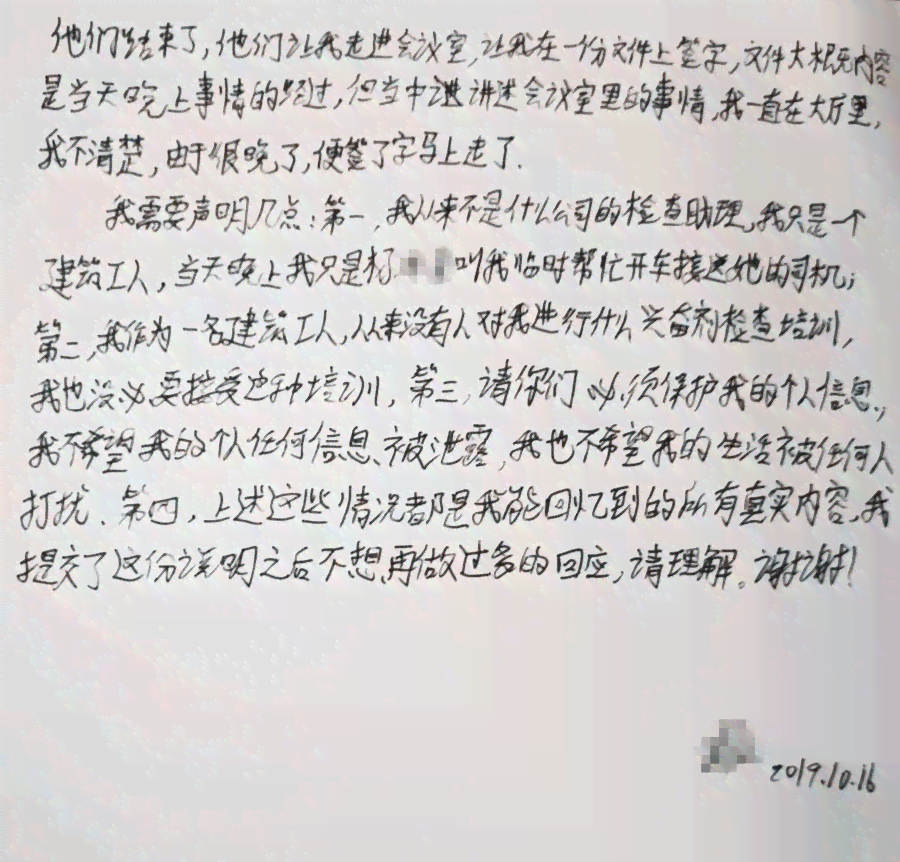 他们结束了，他们让我走进会议室，让我在一份文件上签字，文件大概内容
是当天晚上事情的经过，但当中讲述会议室里的事情，我一直在大厅里，
我不清楚，由于很晚了，便签了字马上走了.
我需要声明几点：第一，我从来不是什么公司的检查助理，我只是一个
建筑工人，当天晚上我只是杨 叫我临时帮忙开车接送她的司机；
第二，我作为一名建筑工人，从来没有人对我进行什么兴奋剂检查培训，
我也没必要接受这种培训，第三，请你们必须保护我的个人信息，
我不希望我的个人任何信息被泄露，我也不希望我的生活被任何人
打扰．第四，上述这些情况都是我能回忆到的所有真实内容，我
提交了这份说明之后不想再做过多的回应，请理解。谢谢！
2019.10.16